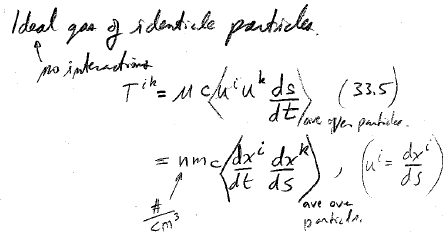 Ideal gas of identicle particles.
no interactions
T^{ik} = μc⟨u^i u^k ds/dt⟩ ave over particles. (33.5)
= nmc⟨dx^i/dt dx^k/ds⟩ ave over particls. , (u^i = dx^i/ds)
#/cm^3